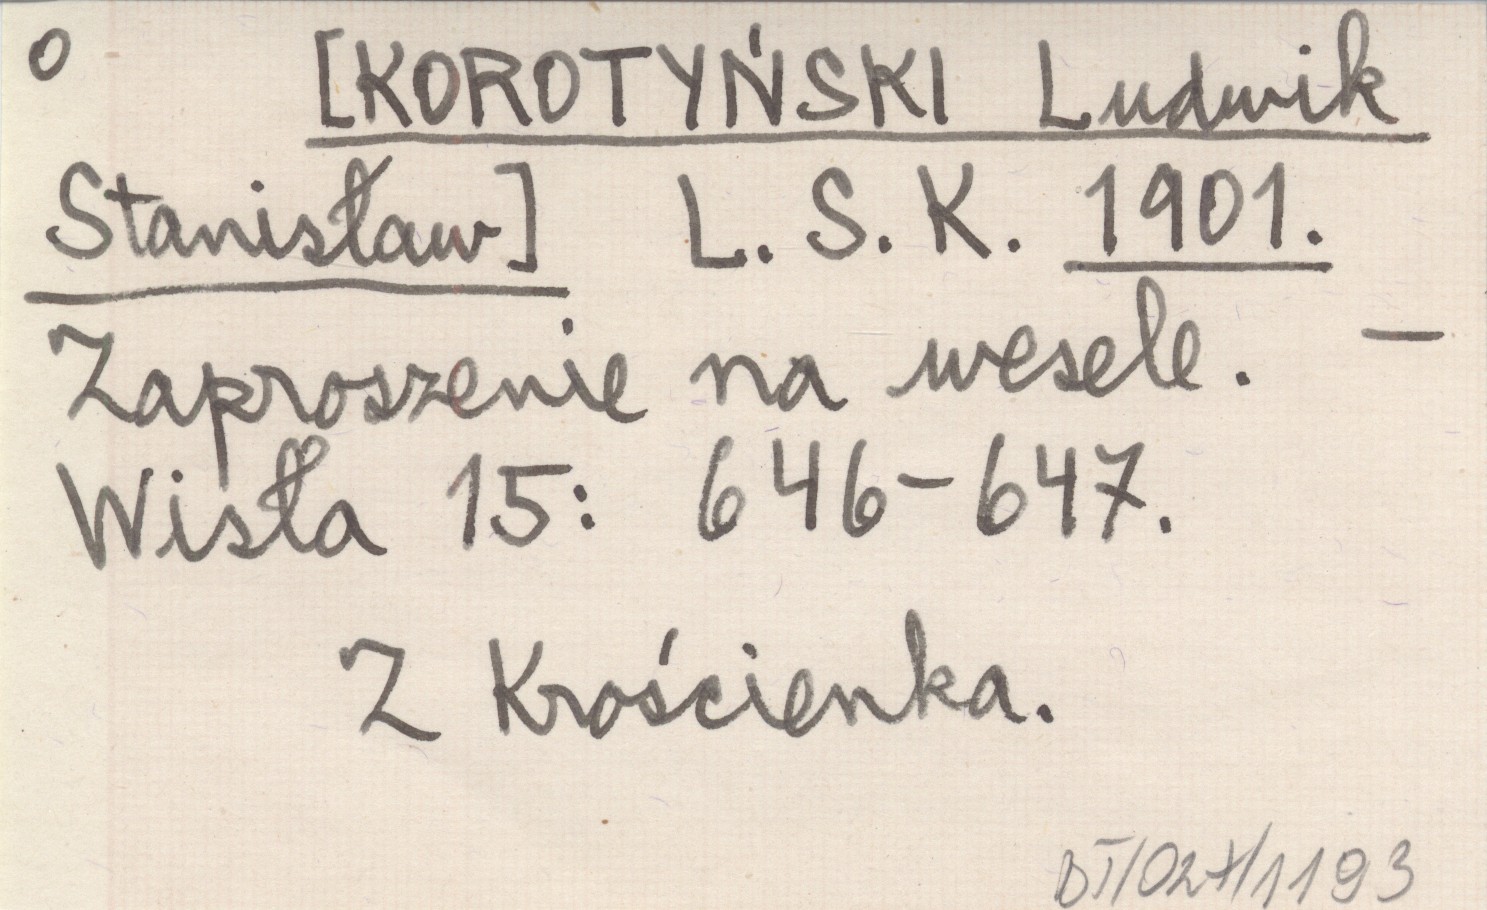 o [KOROTYŃSKI Ludwik
Stanisław] L. S. K. 1901.
Zaproszenie na wesele. —
Wisła 15: 646-647.
Z Krościenka.
DT/027/1193